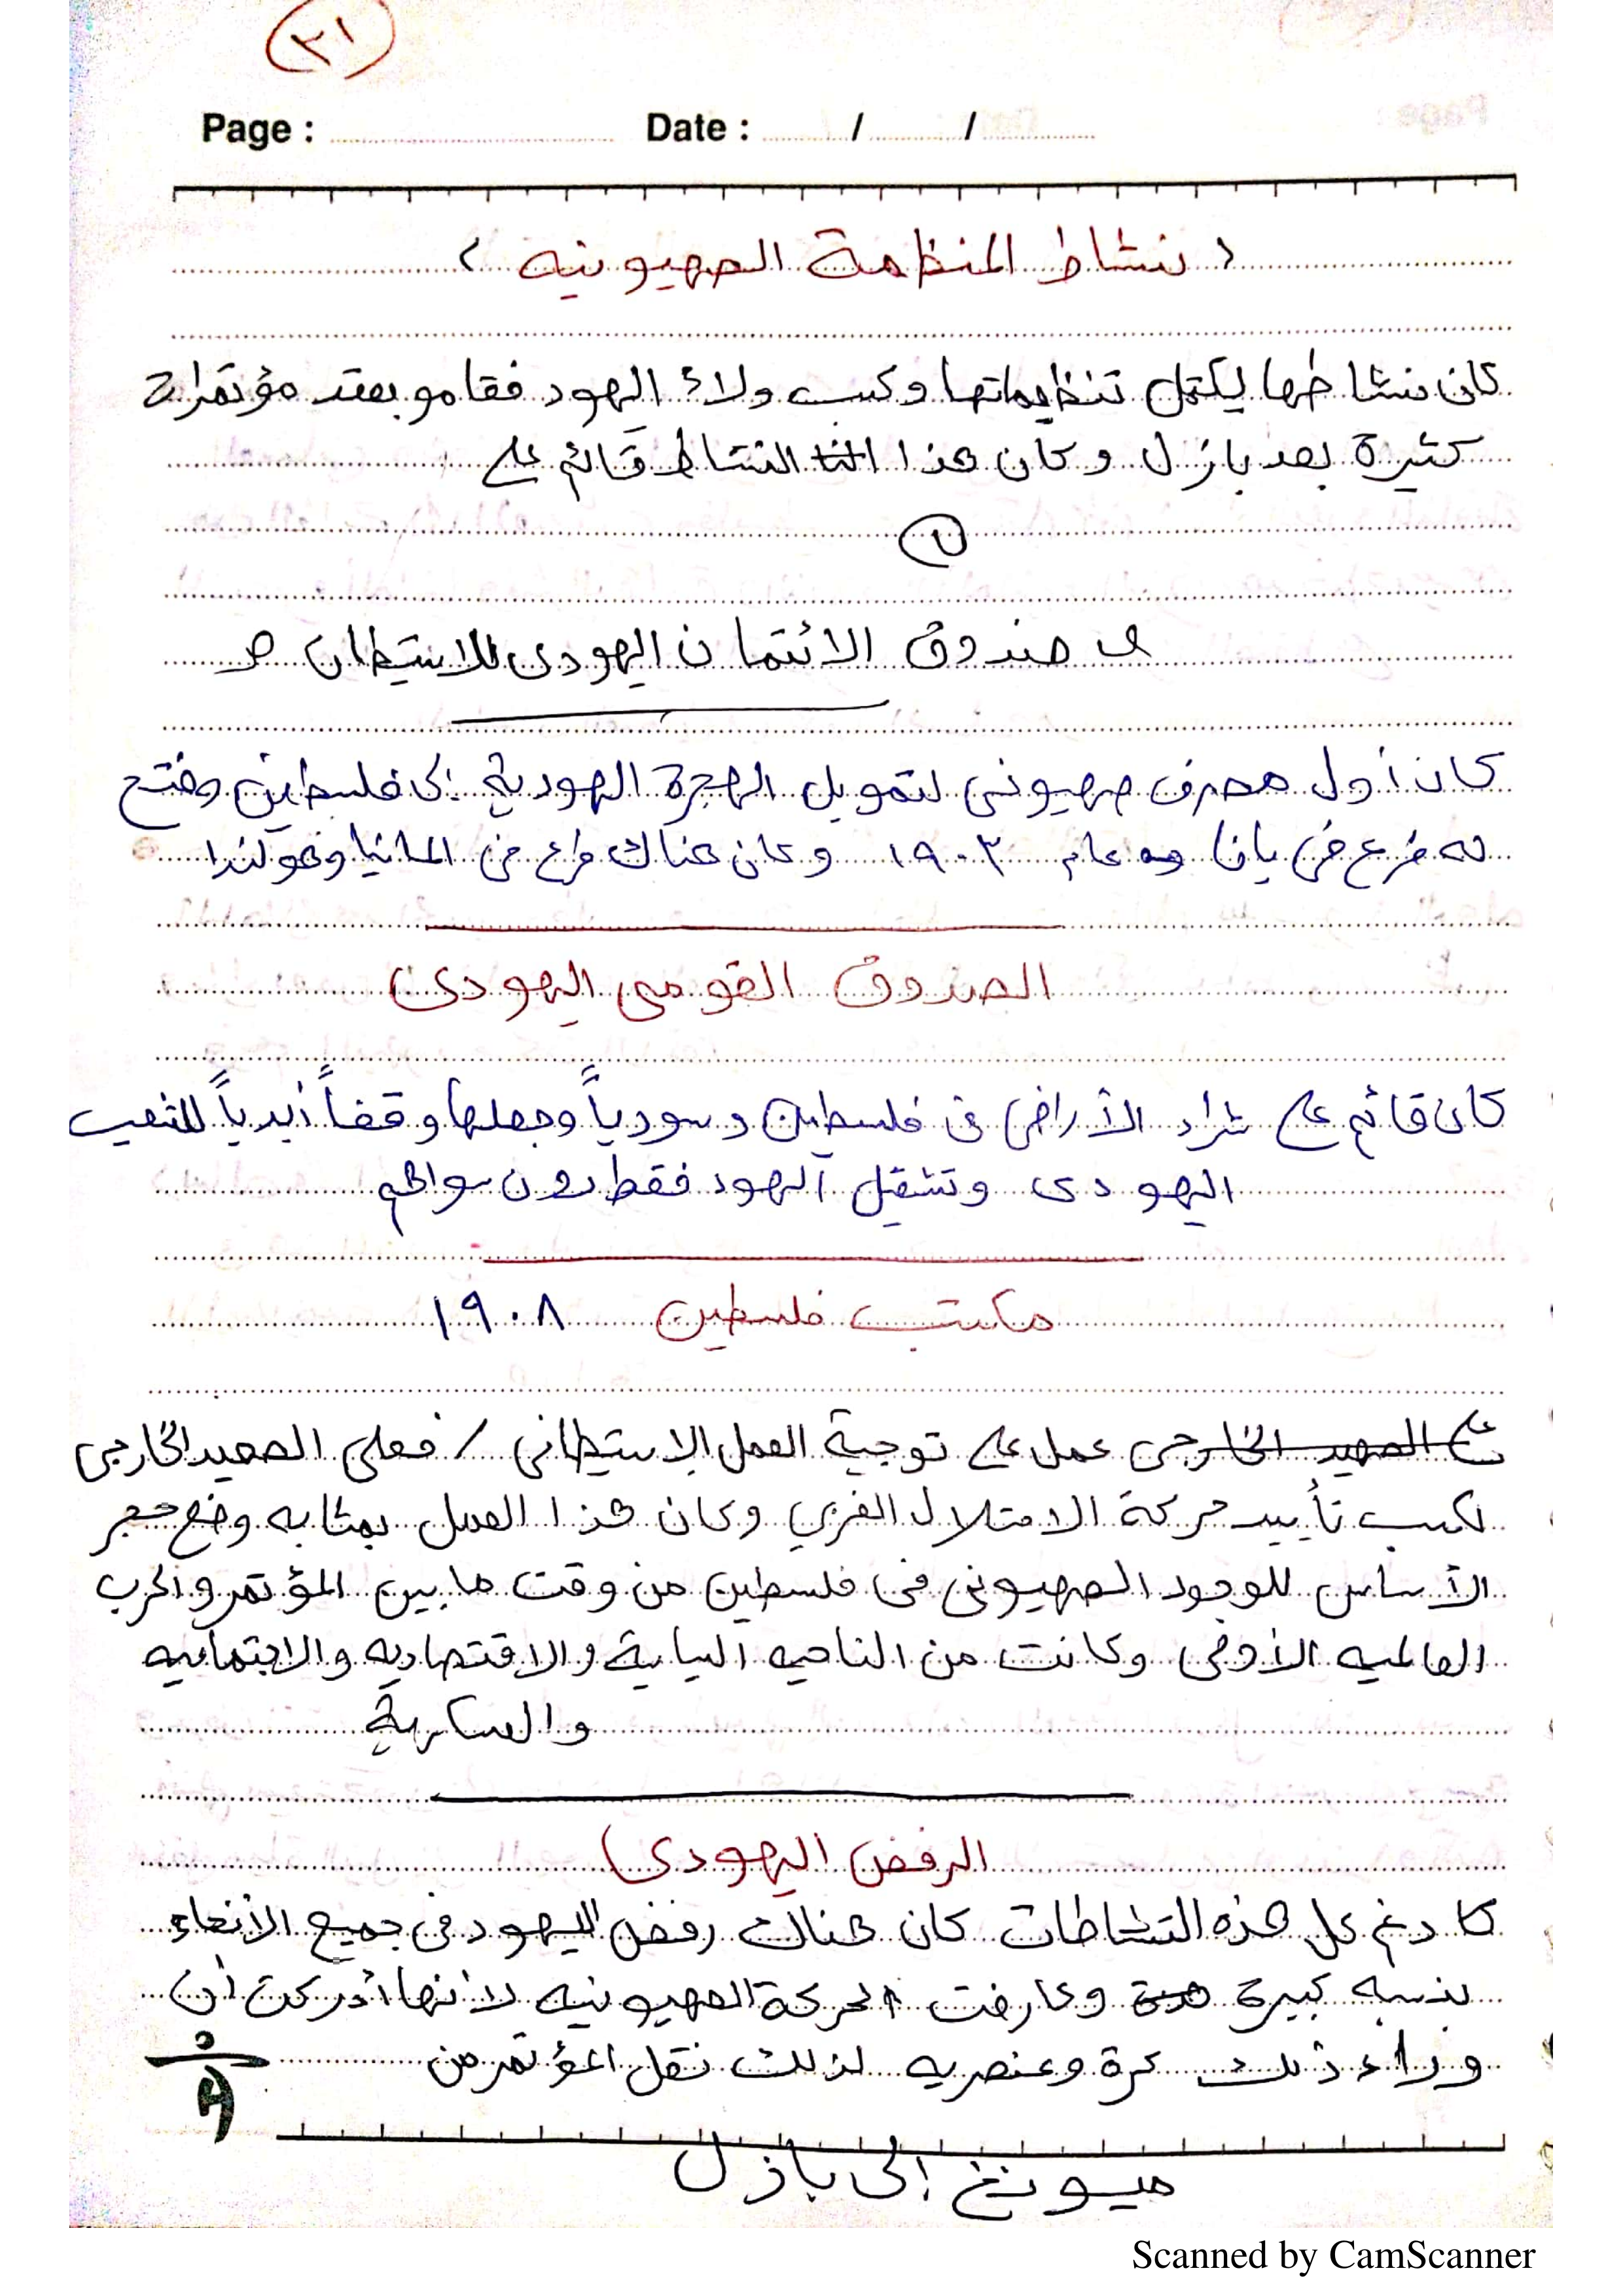 ٢١
Page : Date : / /
< نشاط المنظمة الصهيونيه >
كان نشاطها ليكتمل تنظيماتها وكسب ولاء اليهود فقامو بعقد مؤتمرات
كثيرة بعد بازل وكان هذا النشاط قائم على
صندوق الائتمان اليهودى للاستيطان
كان أول مصرف صهيونى لتمويل الهجرة اليهودية إلى فلسطين وفتح
له فرع فى يافا عام ١٩٠٣ وكان هناك فرع فى المانيا وهولندا
الصندوق القومى اليهودى
كان قائم على شراء الأراضى فى فلسطين وسورياً وجعلها وقفاً أبدياً للشعب
اليهودى وتشغيل اليهود فقط دون سواهم
مكتب فلسطين ١٩٠٨
على الصعيد الخارجى عمل على توجية العمل الإستيطانى / فعلى الصعيد الخارجى
لكسب تأييد حركة الاحتلال الغربي وكان هذا العمل بمثابه وضع حجر
الأساس للوجود الصهيونى فى فلسطين من وقت ما بين المؤتمر والحرب
العالميه الأولى وكانت من الناحيه السياسية والاقتصاديه والاجتماعيه
والعسكرية
الرفض اليهودى
رغم كل هذه النشاطات كان هناك رفض اليهود فى جميع الأنحاء
بنسبه كبيرة وعارضت الحركة الصهيونيه لأنها أدركت أن
وراء ذلك كرة وعنصريه لذلك نقل المؤتمر من
ميونخ إلى بازل
Scanned by CamScanner